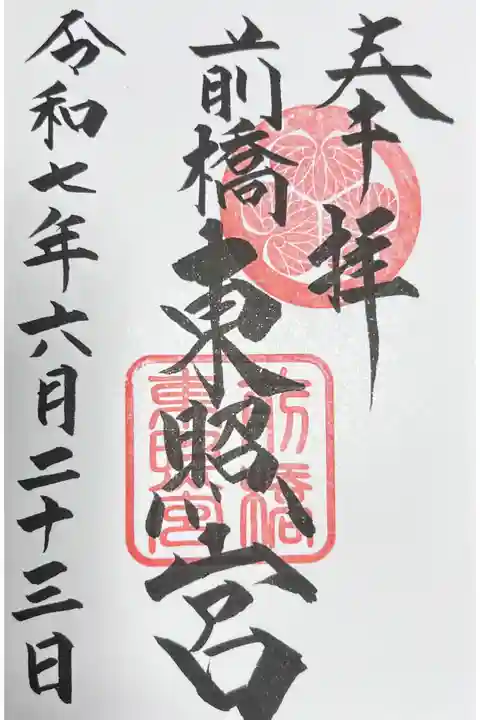 奉拝
前橋東照宮
前橋東照宮
令和七年六月二十三日